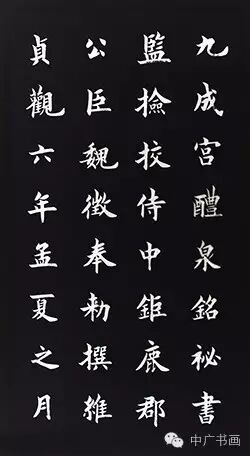 九成宮醴泉銘祕書
監撿挍侍中鉅鹿郡
公臣魏徵奉勑撰維
貞觀六年孟夏之月
中广书画